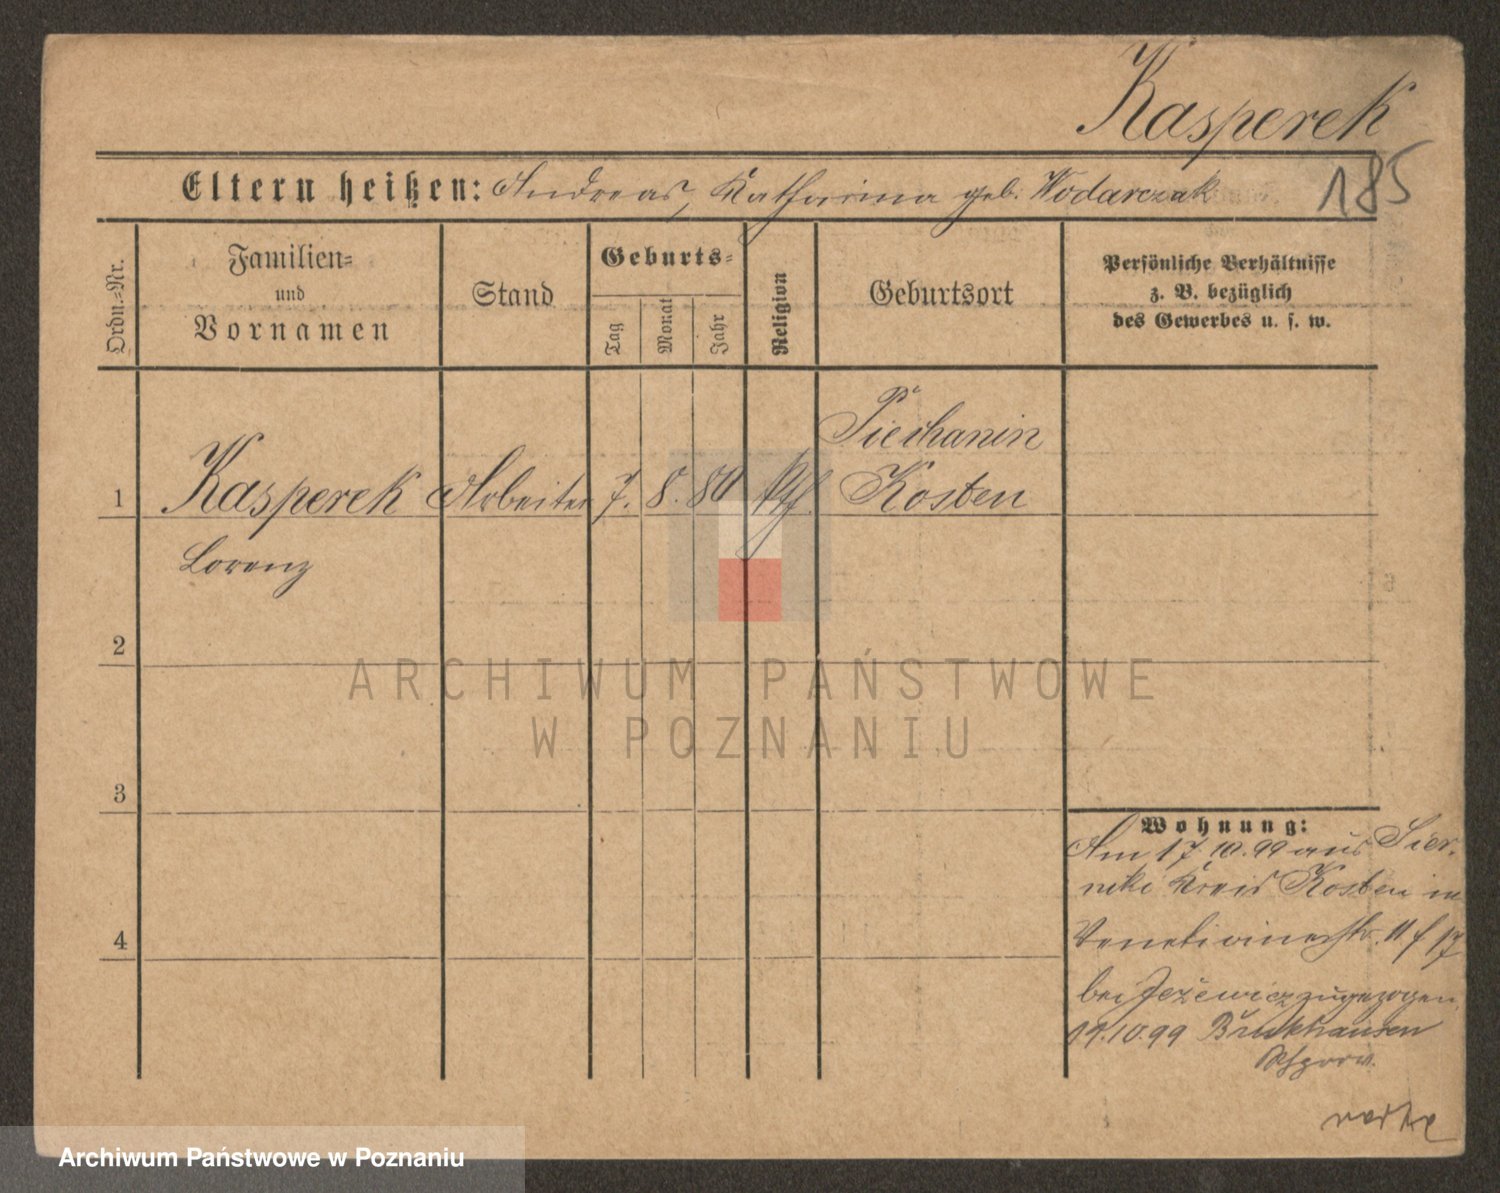 Kasperek
185
Eltern heißen: Andreas, Katharina geb. Wodarczak
Ordn.=Nr.
Familien=
und
Vornamen
Stand
Geburts=
Tag
Monat
Jahr
Religion
Geburtsort
Persönliche Verhältnisse
z. B. bezüglich
des Gewerbes u. s. w.
Piechanin
1 Kasperek Arbeiter 7. 8. 80 Kosten
Lorenz
2
3
4
Wohnung:
Am 17.10.99 aus Sier-
niki Kreis Kosten in
Venetianerstr. 11 f 17
bei Jeżewicz zugezogen
19.10.99
ARCHIWUM PAŃSTWOWE
W POZNANIU
Archiwum Państwowe w Poznaniu